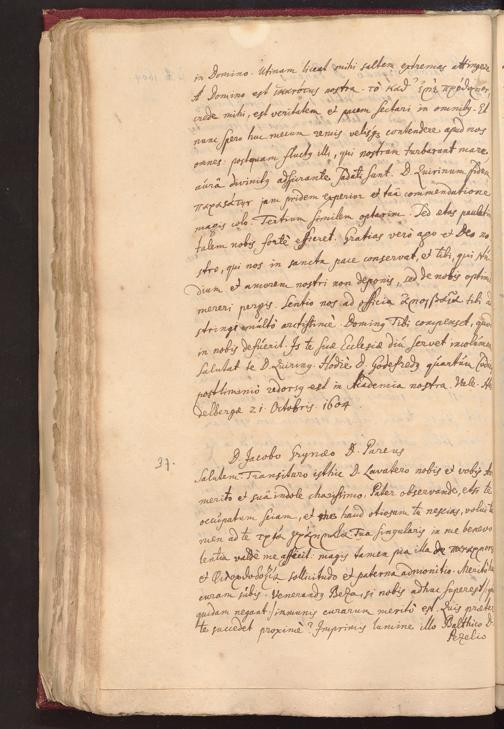 in Domino. Utinam liceat mihi saltem extremas attingere
A Domino est ἱκανότης nostra. τὸ καθ᾽ πρόθυμον
crede mihi, est veritatem et pacem sectari in omnibus. Et
nunc spero huc mecum remis velisque contendere apud nos
omnes: postquam fluctus illi, qui nostrum turbarant mare
aura divinitus adspirante sedati sunt. D. Quirinum fidem
jam pridem experior et tua commendatione
magis colo. Tertium similem optarim. Sed aetas
talem nobis fortè efficeret. Gratias verò ago et Deo no
stro, qui nos in sancta pace conservat, et tibi, qui stu
dium et amorem nostri non deponis, sed de nobis optimè
mereri pergis. Sentio nos ad officia tibi
stringi multò arctissimè. Dominus Tibi compenset, quod
in nobis defuerit. Is te suae Ecclesiae diu servet incolumem
Salutat te D. Quirinus. Hodiè D. Godefredus quartum
postliminiò reversus est in Academia nostra. Vale. Hei
delbergae 21. Octobris. 1604
37.
D. Jacobo Grynaeo D. Pareus
Salutem. Transituro isthic D. Lavatero nobis et vobis
merito et suâ indole charissimo, Pater observande, etsi te
occupatum sciam, et me haud otiosum tu nescias, volui ta
men ad te τρία γράμματα. Tua singularis in me benevo
lentia valdè me afficit: magis tamen pia illa de
et sollicitudo et paterna admonitio. Meritò
curam subis. Venerando Beza, si nobis adhuc superest /
quidam negant / immunis curarum meritò est. Quis praeter
te succedet proximè? Imprimis lumine illo Balthico D.
Pezelio